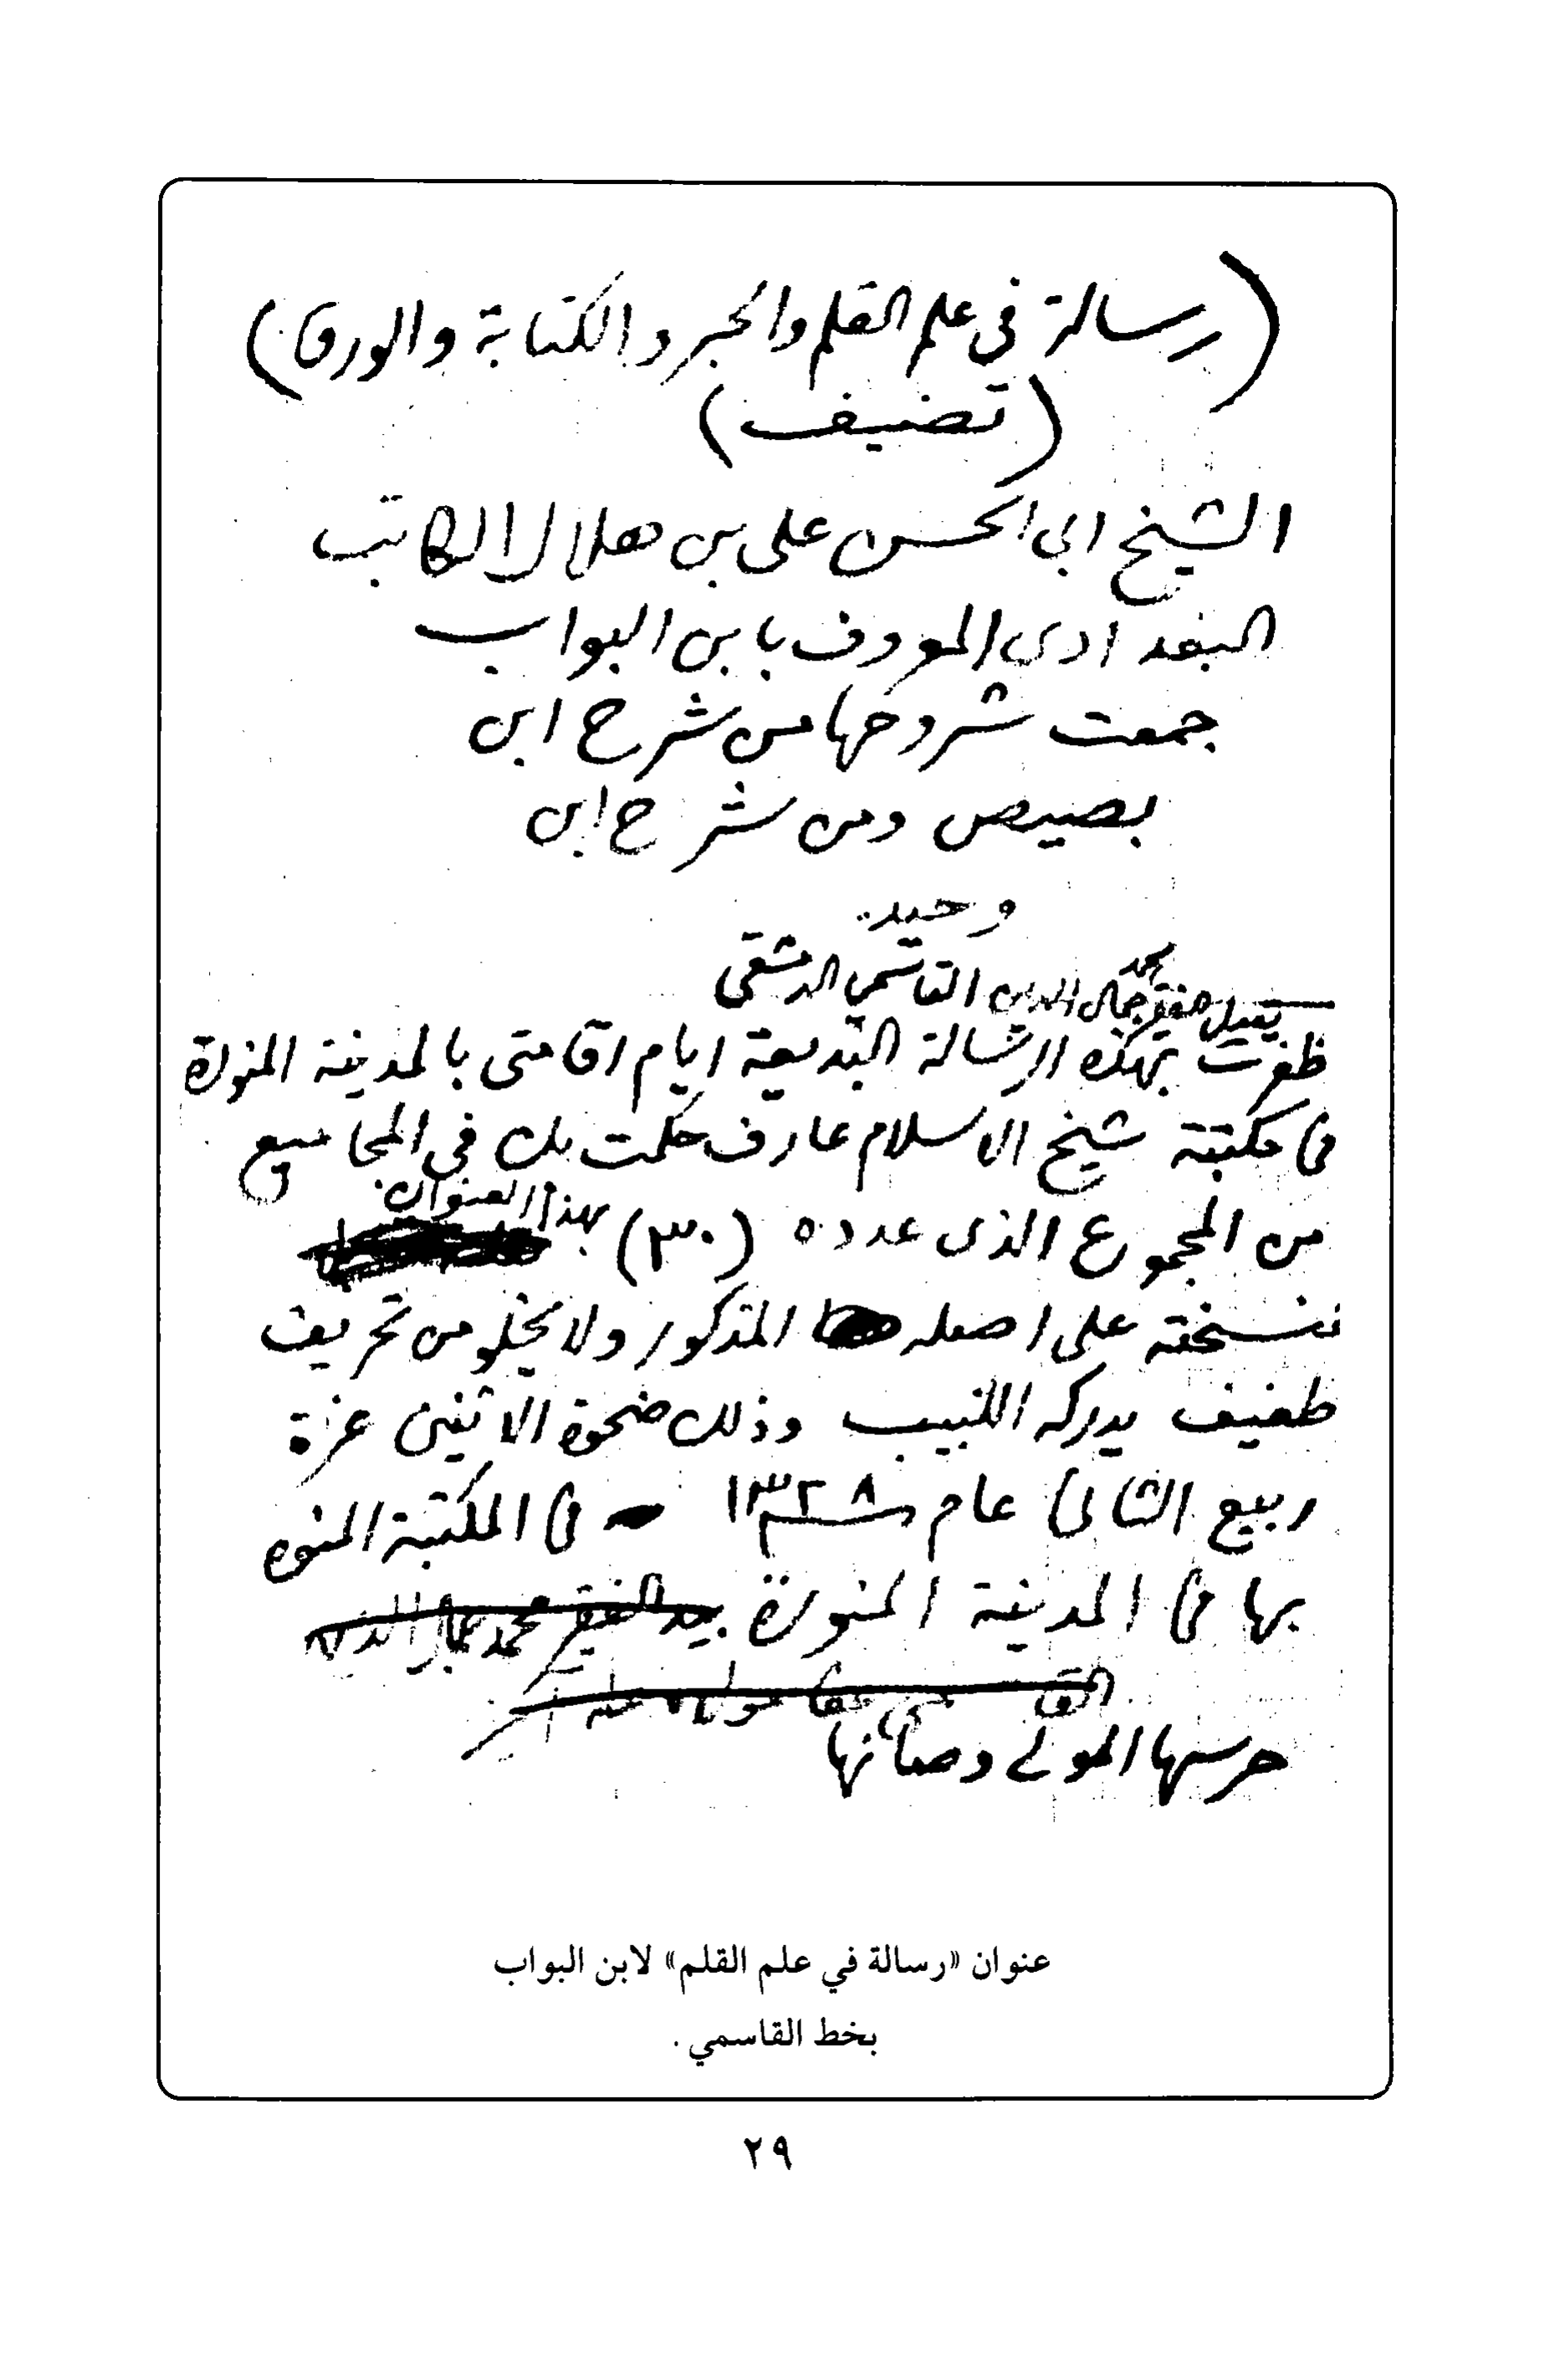 (رسالة في علم القلم والحبر والكتابة والورق)
(تصنيف)
الشيخ ابي الحسن على بن هلال الكاتب
البغدادى المعروف بابن البواب
جمعت شروحها من شرح ابن
بصيص ومن شرح ابن
وحيد
يقول الفقير محمد جمال الدين القاسمي الدمشقى
ظفرت بهذه الرسالة البديعة ايام اقامتى بالمدينة المنورة
فى مكتبة شيخ الاسلام عارف حكمت بك في المجاميع
من المجموع الذى عدده (٣٠) بهذا العنوان
نسخته على اصله المذكور ولا يخلو من تحريف
طفيف يدركه اللبيب وذلك ضحوة الاثنين غرة
ربيع الثانى عام ١٣٢٨ فى المكتبة المنوه
بها فى المدينة المنورة بيد الفقير محمد جمال الدين
القاسمي عفا مولاه عنه
حرسها المولى وصانها
عنوان «رسالة في علم القلم» لابن البواب
بخط القاسمي .
٢٩